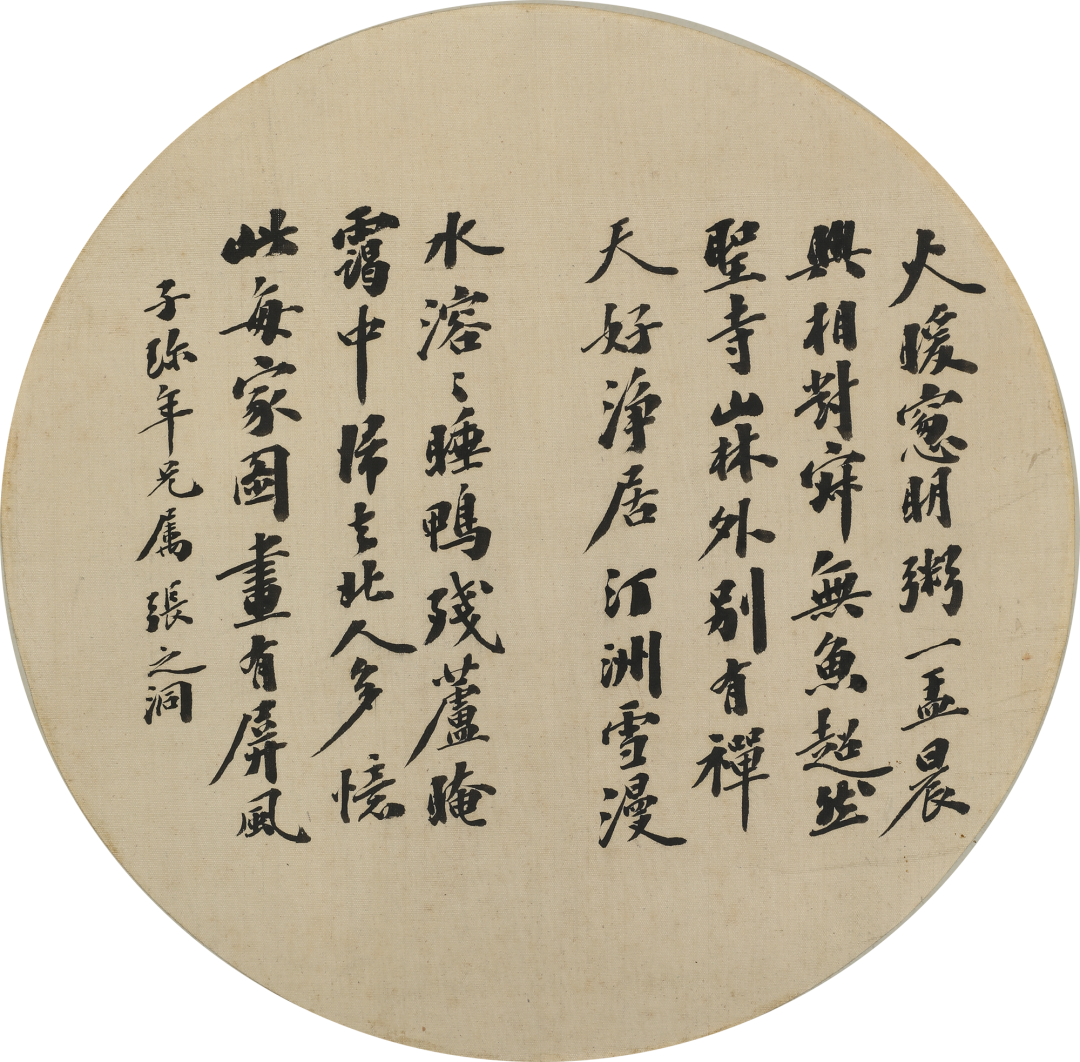 火暖窻明粥一盂晨
興相對寂無魚超然
聖寺山林外別有禪
天好淨居汀洲雪漫
水溶〻睡鴨殘蘆晻
靄中歸去北人多憶
此每家圖畫有屏風
子弥年兄属張之洞